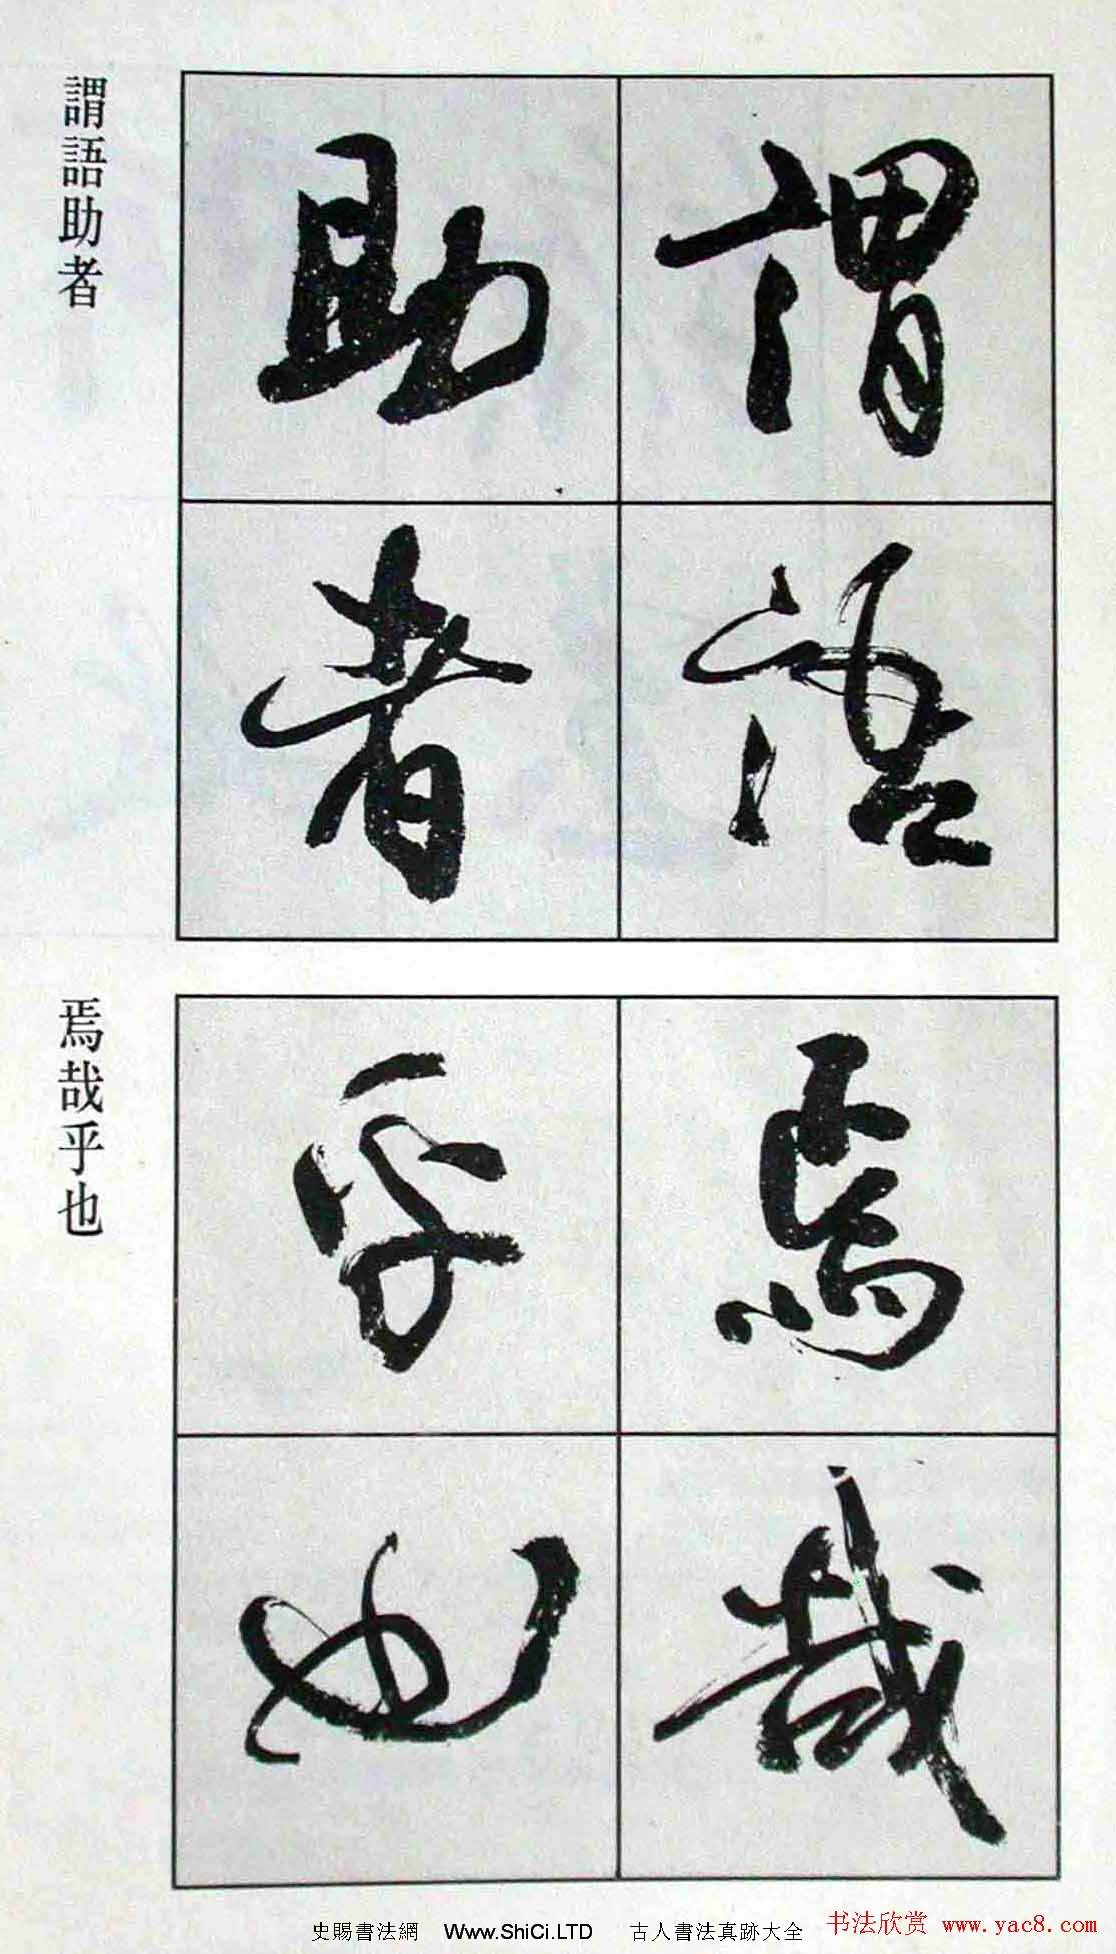 謂語
助者
謂語助者
焉哉
乎也
焉哉乎也
史賜書法網 Www.ShiCi.LTD 古人書法真跡大全
书法欣赏 www.yac8.com